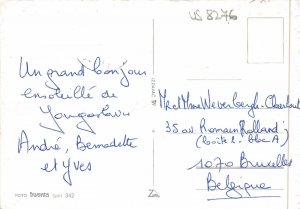 US 8276
Un grand bonjour
ensoleillé de
Yougoslavie
André, Bernadette
et Yves
Mr et Mme Weverbergh-
35 av Romain Rolland
(boîte 2. bloc A)
1070 Bruxelles
Belgique
FOTO 342